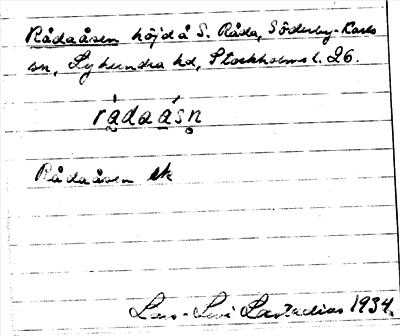 Rådaåsen höjd å S. Råda, Söderby-Karls
sn, Lyhundra hd, Stockholms l. 26.
rádaásn̥
Rådaåsen ek
Lars-Levi Læstadius 1934.